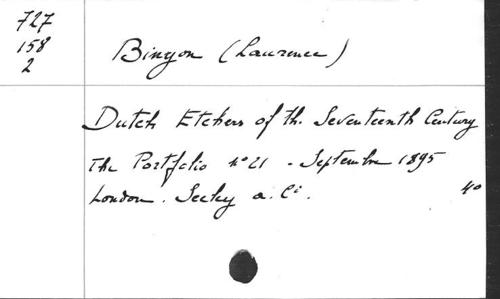 727
158
2
Binyon (Laurence)
Dutch Etchers of the Seventeenth Century
The Portfolio n° 21 - Septembre 1895
London. Seeley a. C°.
4°